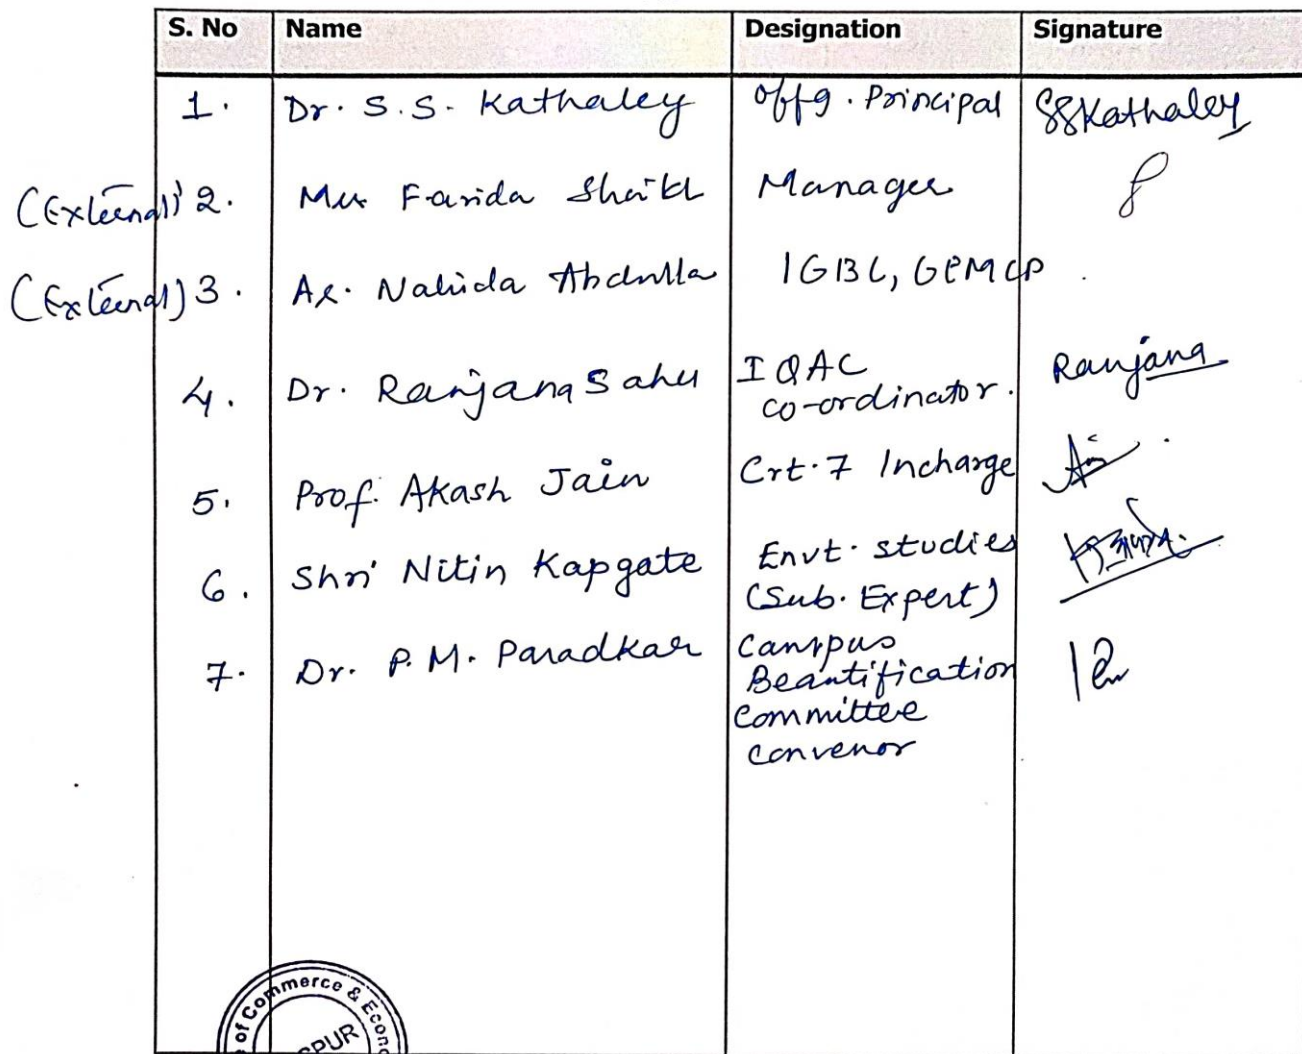 S. No Name Designation Signature
1. Dr. S.S. Kathaley Offg. Principal SSKathaley
(External) 2. Farida Shaikh Manager
(External) 3. Ar. Nahida Abdulla IGBC, GEM CP.
4. Dr. Ranjana Sahu IQAC Ranjana
co-ordinator.
5. Prof. Akash Jain Crt. 7 Incharge
6. Shri Nitin Kapgate Envt. studies
(Sub. Expert)
7. Dr. P.M. Paradkar Campus
Beautification
Committee
convenor
of Commerce & Econo